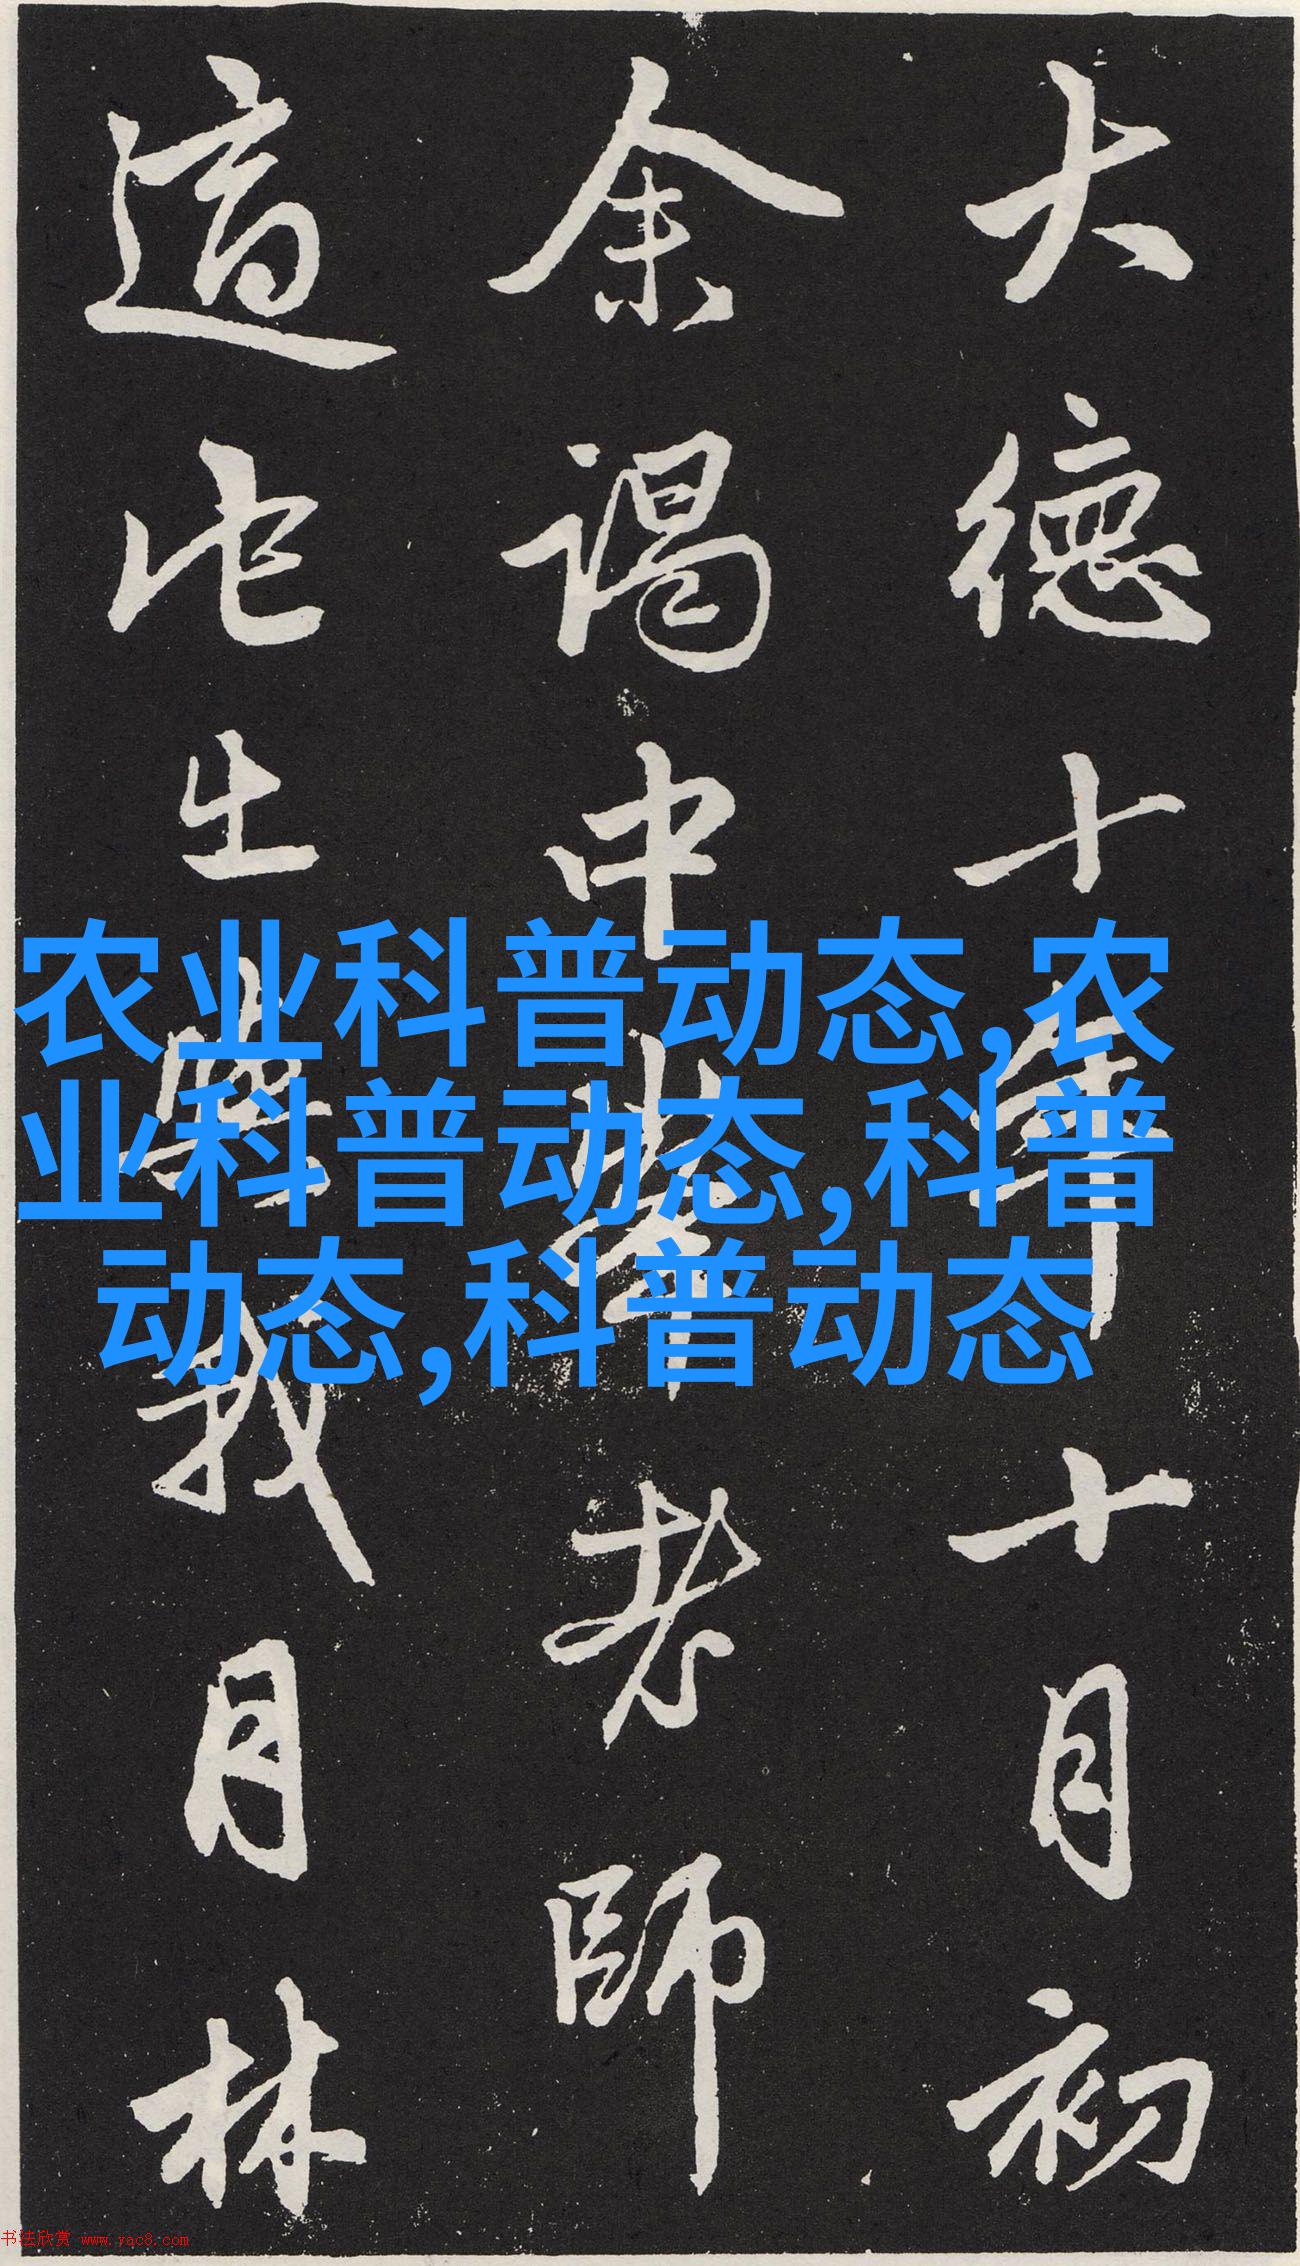 大德十年十月初
余謁中峯老師
適此與我月林
农业科普动态,农
业科普动态,科普
动态,科普动态
书法欣赏 www.yac8.com